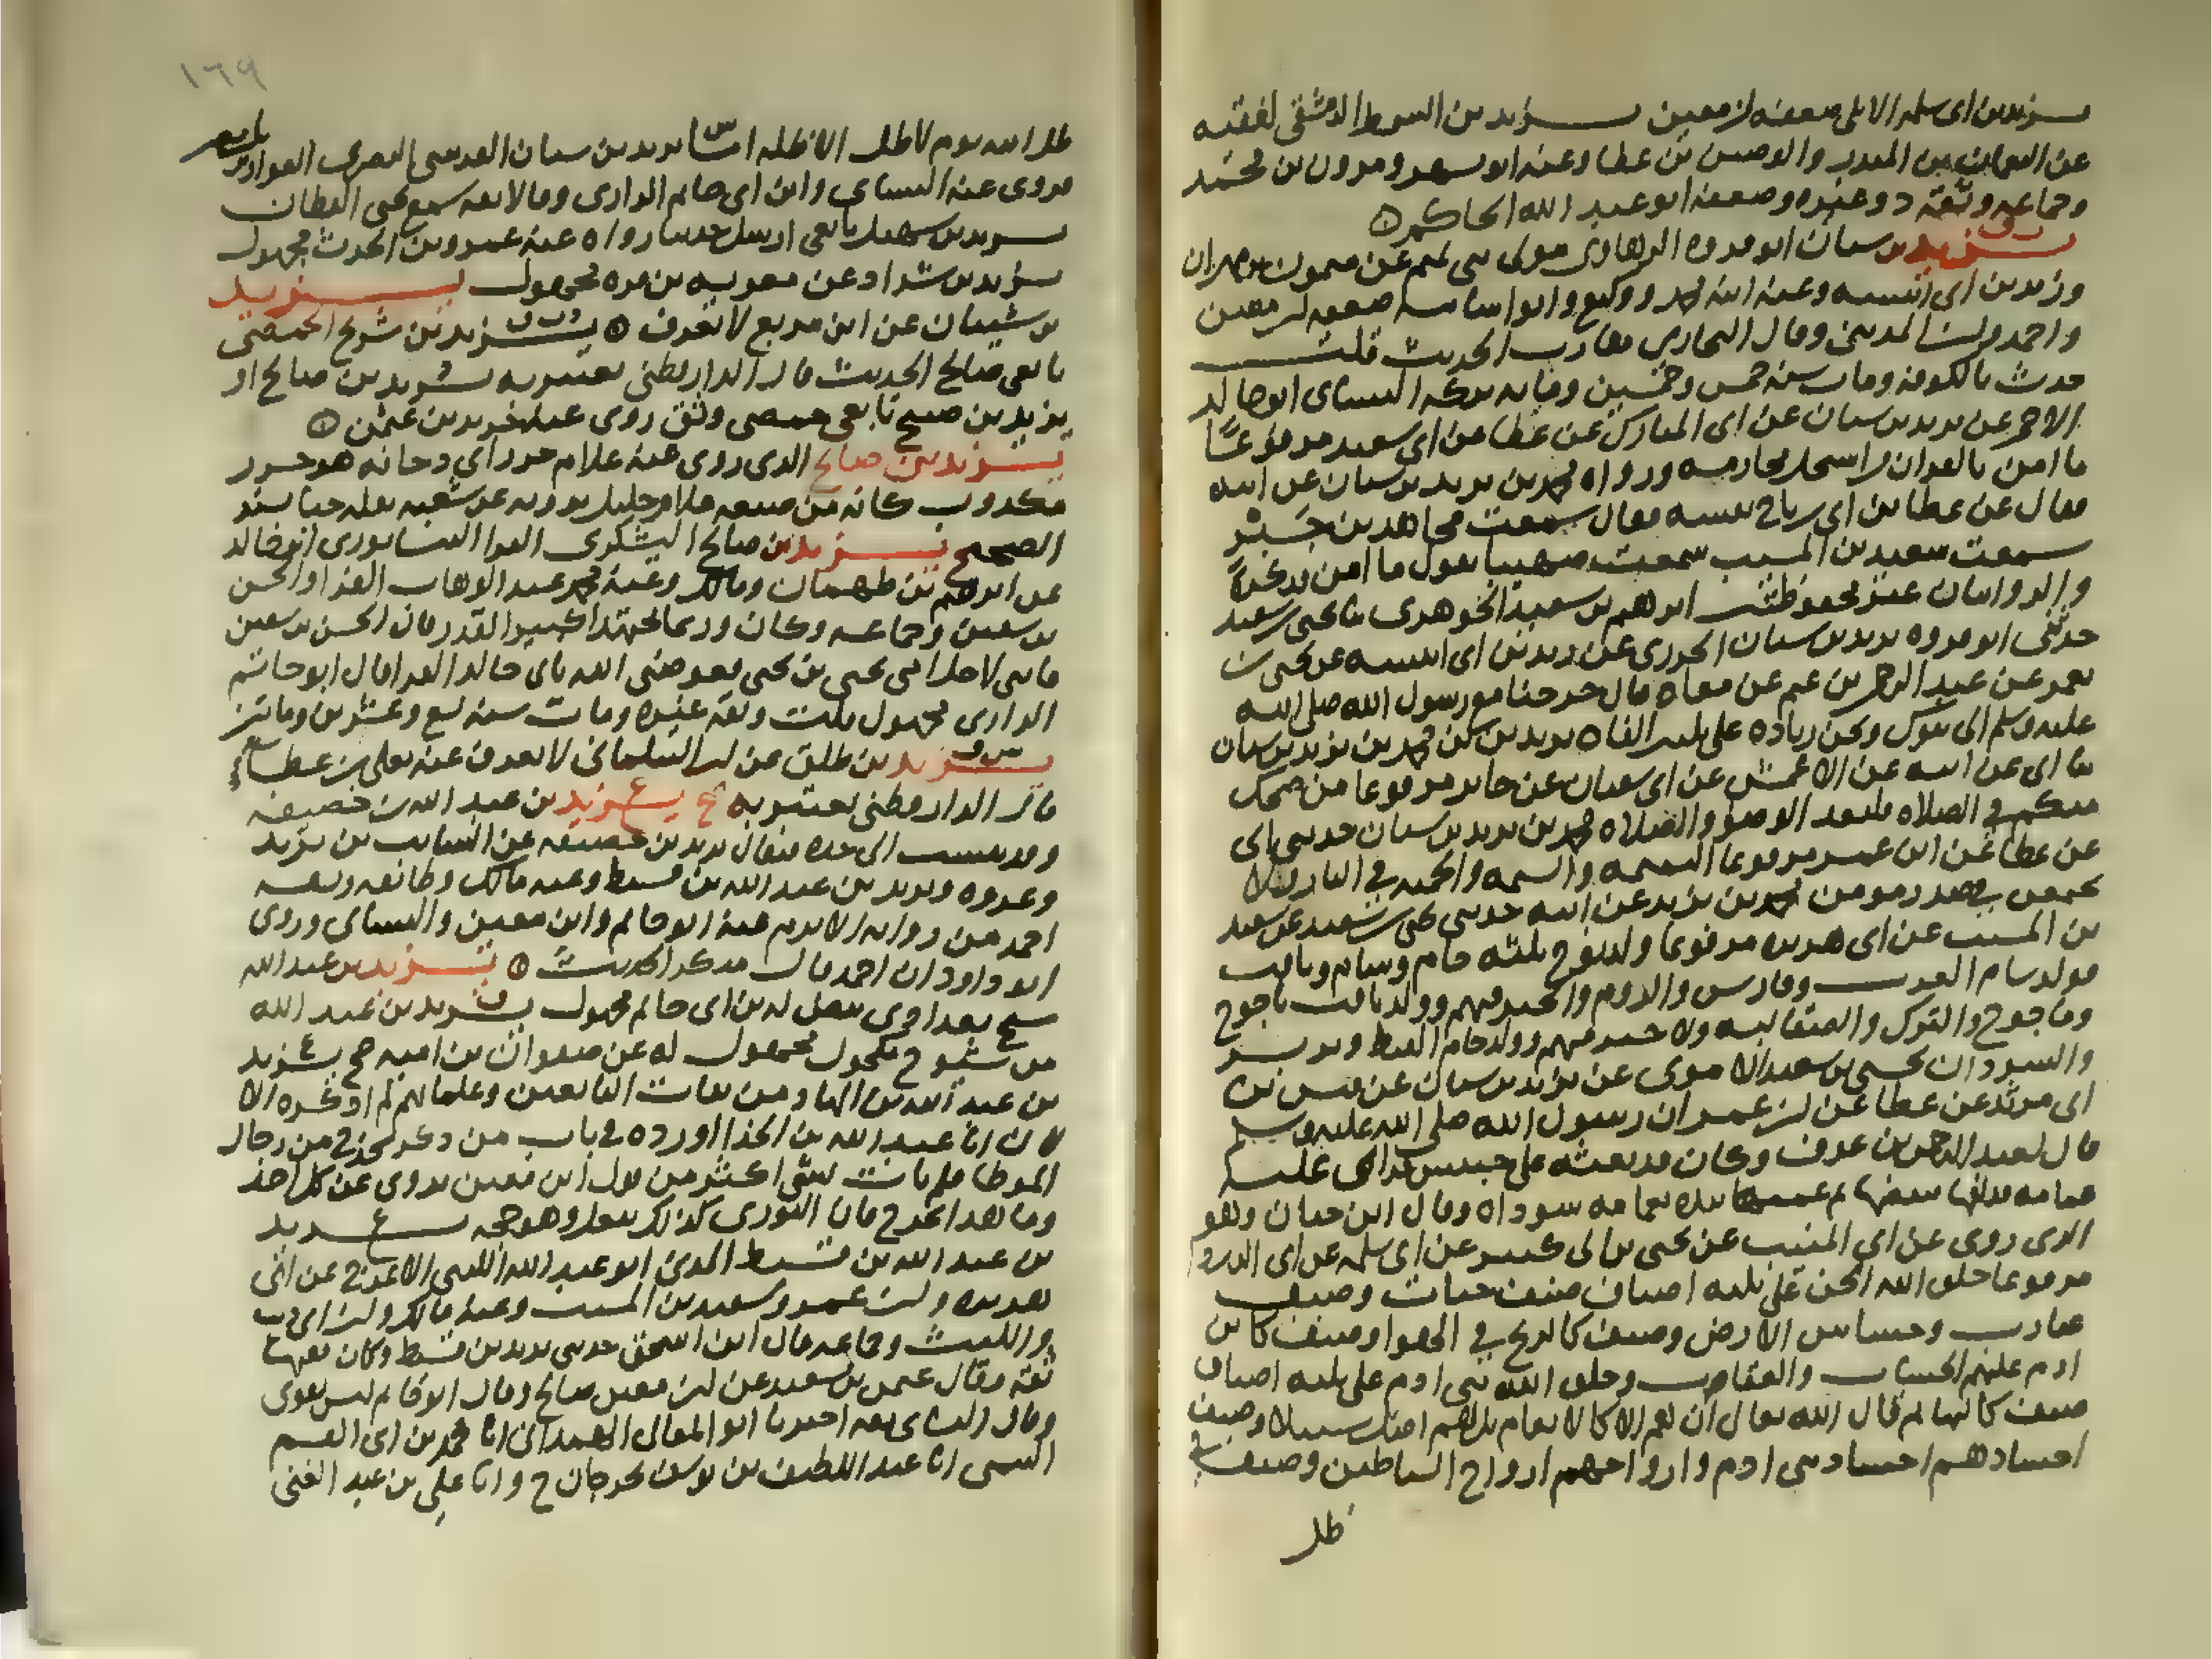 يزيد بن ابي سلمه الايلي ضعفه ابن معين يزيد بن السمط الدمشقي الفقيه
عن النعمان بن المنذر والوضين بن عطا وعنه ابو مسهر ومرون بن محمد
وجماعه وثقه د وغيره وضعفه ابو عبد الله الحاكم
يزيد بن سنان ابو فروه الرهاوي مولى بني تميم عن ميمون بن مهران
وزيد بن ابي انيسه وعنه ابنه محمد ووكيع وابو اسامه ضعفه ابن معين
واحمد وابن المديني وقال البخاري مقارب الحديث قلت
حدث بالكوفه ومات سنه خمس وخمسين ومايه تركه النسائي ابو خالد
الاحمر عن يزيد بن سنان عن ابي المبارك عن عطا عن ابي سعيد مرفوعا
ما امن بالقران من استحل محارمه ورواه محمد بن يزيد بن سنان عن ابيه
فقال عن عطا بن ابي رباح نفسه فقال سمعت مجاهد بن جبر
سمعت سعيد بن المسيب سمعت صهيبا يقول ما امن فذكره
والروايتان غير محفوظتين ابرهيم بن سعيد الجوهري ثنا يحيى بن سعيد
حدثني ابو فروه يزيد بن سنان الجزري عن زيد بن ابي انيسه عن يحيى بن
يعمر عن عبد الرحمن بن غنم عن معاذ قال خرجنا مع رسول الله صلى الله
عليه وسلم الى تبوك ونحن زياده على ثلثين الفا محمد بن يزيد بن سنان
ثنا ابي عن ابيه عن الاعمش عن ابي سفيان عن جابر مرفوعا من ضحك
منكم في الصلاه فليعد الوضو والصلاه محمد بن يزيد بن سنان حدثني ابي
عن عطا عن ابن عمر مرفوعا النميمه والشتيمه والحميه في النار ولا
يجتمعن في صدر مومن محمد بن يزيد عن ابيه حدثني يحيى بن سعيد عن سعيد
بن المسيب عن ابي هريره مرفوعا ولد نوح ثلثه حام وسام ويافث
فولد سام العرب وفارس والروم والخير فيهم وولد يافث ياجوج
وماجوج والترك والصقالبه ولا خير فيهم وولد حام القبط وبربر
والسودان يحيى بن سعيد الاموي عن يزيد بن سنان عن قيس بن
ابي مرثد عن عطا عن ابن عمر ان رسول الله صلى الله عليه وسلم
قال لعبد الرحمن بن عوف وكان قد بعثه على جيش فراى عليه
عمامه فنقضها ثم عممه بيده عمامه سوداه وقال ابن حبان وهو
الذي روى عن ابي المنيب عن يحيى بن ابي كثير عن ابي سلمه عن ابي الدردا
مرفوعا خلق الله الجن على ثلثه اصناف صنف حيات وصنف
عقارب وخشاش الارض وصنف كالريح في الهوا وصنف كابن
ادم عليهم الحساب والعقاب وخلق الله بني ادم على ثلثه اصناف
صنف كالبهايم قال الله تعالى ان هم الا كالانعام بل هم اضل سبيلا وصنف
اجسادهم اجساد بني ادم وارواحهم ارواح الشياطين وصنف في
ظل
١٦٩
ظل الله يوم لا ظل الا ظله يزيد بن سنان القرشي البصري القزاز
يروي عنه النسائي وابن ابي حاتم الرازي وقالا ثقه سمع يحيى القطان
يزيد بن سهيل تابعي ارسل حديثا رواه عنه عمرو بن الحرث مجهول
يزيد بن شداد عن معويه بن قره مجهول يزيد
بن شيبان عن ابن مربع لا يعرف يزيد بن شريح الحمصي
تابعي صالح الحديث قال الدارقطني يعتبر به يزيد بن صالح او
يزيد بن صليح تابعي حمصي وثق روى عنه حريز بن عثمن
يزيد بن صالح الذي روى عنه غلام خليل
مكذوب كانه من صنعه غلام خليل يرويه عن شعبه
الصحيح يزيد بن صالح اليشكري الفرا النيسابوري ابو خالد
عن ابرهيم بن طهمان ومالك وعنه محمد بن عبد الوهاب الفرا والحسن
بن سفين وجماعه وكان ورعا مجتهدا كبير القدر قال الحسن بن سفين
فاتني لاجل امي يحيى بن يحيى فعوضني الله بابي خالد الفرا قال ابو حاتم
الرازي مجهول قلت وثقه غيره ومات سنه تسع وعشرين ومائتين
يزيد بن طلق عن ابن البيلماني لا يعرف عنه يعلى بن عطاء
قال الدارقطني يعتبر به يزيد بن عبد الله بن خصيفه
وقد ينسب الى جده فيقال يزيد بن خصيفه عن السايب بن يزيد
وعروه ويزيد بن عبد الله بن قسيط وعنه مالك وطائفه وثقه
احمد من روايه الاثرم عنه ابو حاتم وابن معين والنسائي وروى
ابو داود ان احمد قال منكر الحديث يزيد بن عبد الله
شيخ بغدادي بيض له ابن ابي حاتم مجهول يزيد بن عبد الله
من شيوخ مكحول مجهول له عن صفوان بن اميه يزيد
بن عبد الله بن الهاد من ثقات التابعين وعلمائهم لم اذكره الا
لان ابا عبد الله بن الحذا اورده في باب من ذكر بجرح من رجال
الموطا فلم يات بشي اكثر من قول ابن معين يروي عن كل احد
وما هذا بجرح فان الثوري كذلك يفعل وهو حجه يزيد
بن عبد الله بن قسيط المدني ابو عبد الله الليثي الاعرج عن ابي
هريره وابن عمر وسعيد بن المسيب وعنه مالك وابن ابي ذيب
والليث وجماعه قال ابن اسحق حدثني يزيد بن قسيط وكان فقيها
ثقه وقال عثمن بن سعيد عن ابن معين صالح وقال ابو حاتم ليس بقوي
وقال النسائي ثقه اخبرنا ابو المعالي الهمداني انا محمد بن ابي القسم
التيمي انا عبد اللطيف بن يوسف بحرجان ح وانا علي بن عبد الغني